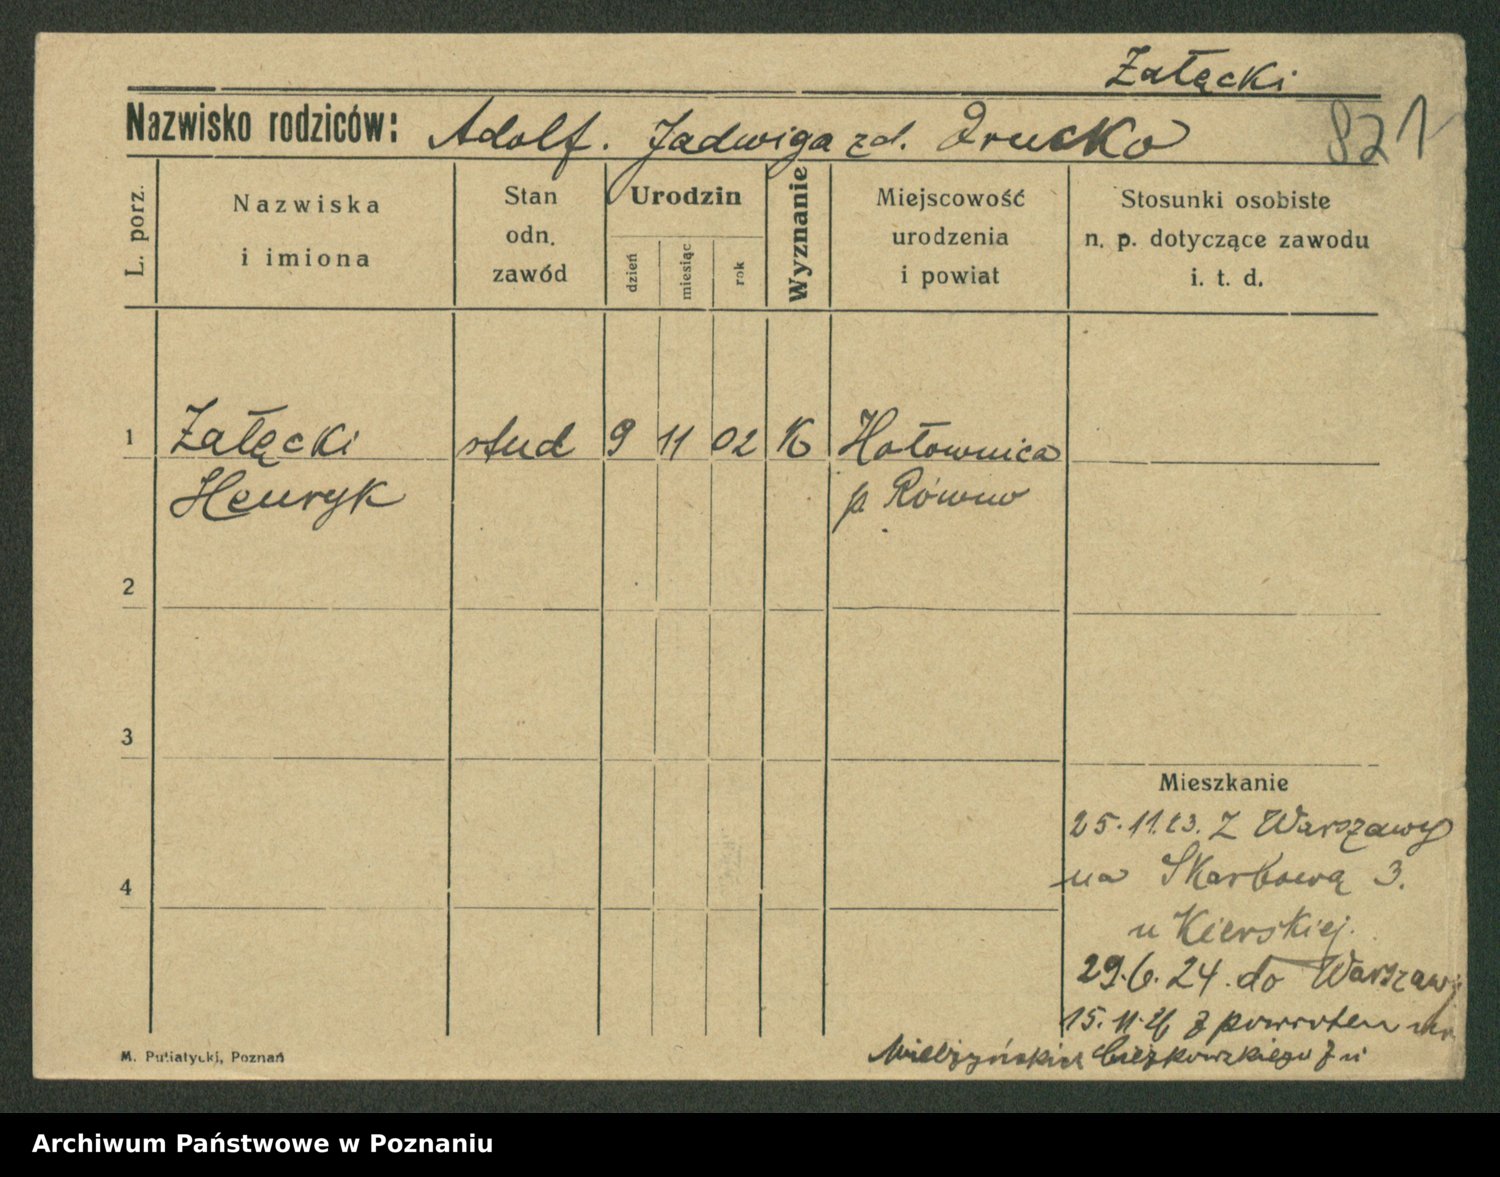 Załęcki
Nazwisko rodziców: Adolf. Jadwiga zd. Drucko
821
L. porz.
Nazwiska
i imiona
Stan
odn.
zawód
Urodzin
dzień
miesiąc
rok
Wyznanie
Miejscowość
urodzenia
i powiat
Stosunki osobiste
n. p. dotyczące zawodu
i. t. d.
1 Załęcki stud 9 11 02 K Hołownica
Henryk p Równo
2
3
4
Mieszkanie
25.11.23. Z Warszawy
na Skarbową 3.
u Kierskiej.
29.6.24. do Warszawy
15.11.26 z powrotem
Cieszkowskiego 7 u
M. Putiatycki, Poznań
Archiwum Państwowe w Poznaniu